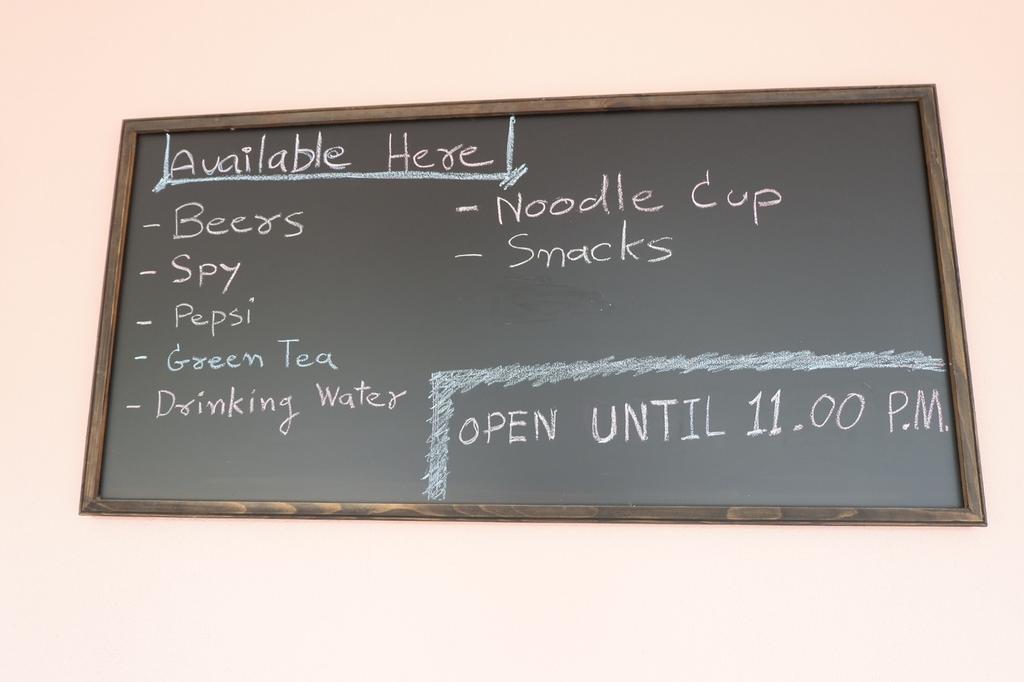 Available Here
- Beers
- Spy
- Pepsi
- Green Tea
- Drinking Water
- Noodle Cup
- Snacks
OPEN UNTIL 11.00 P.M.